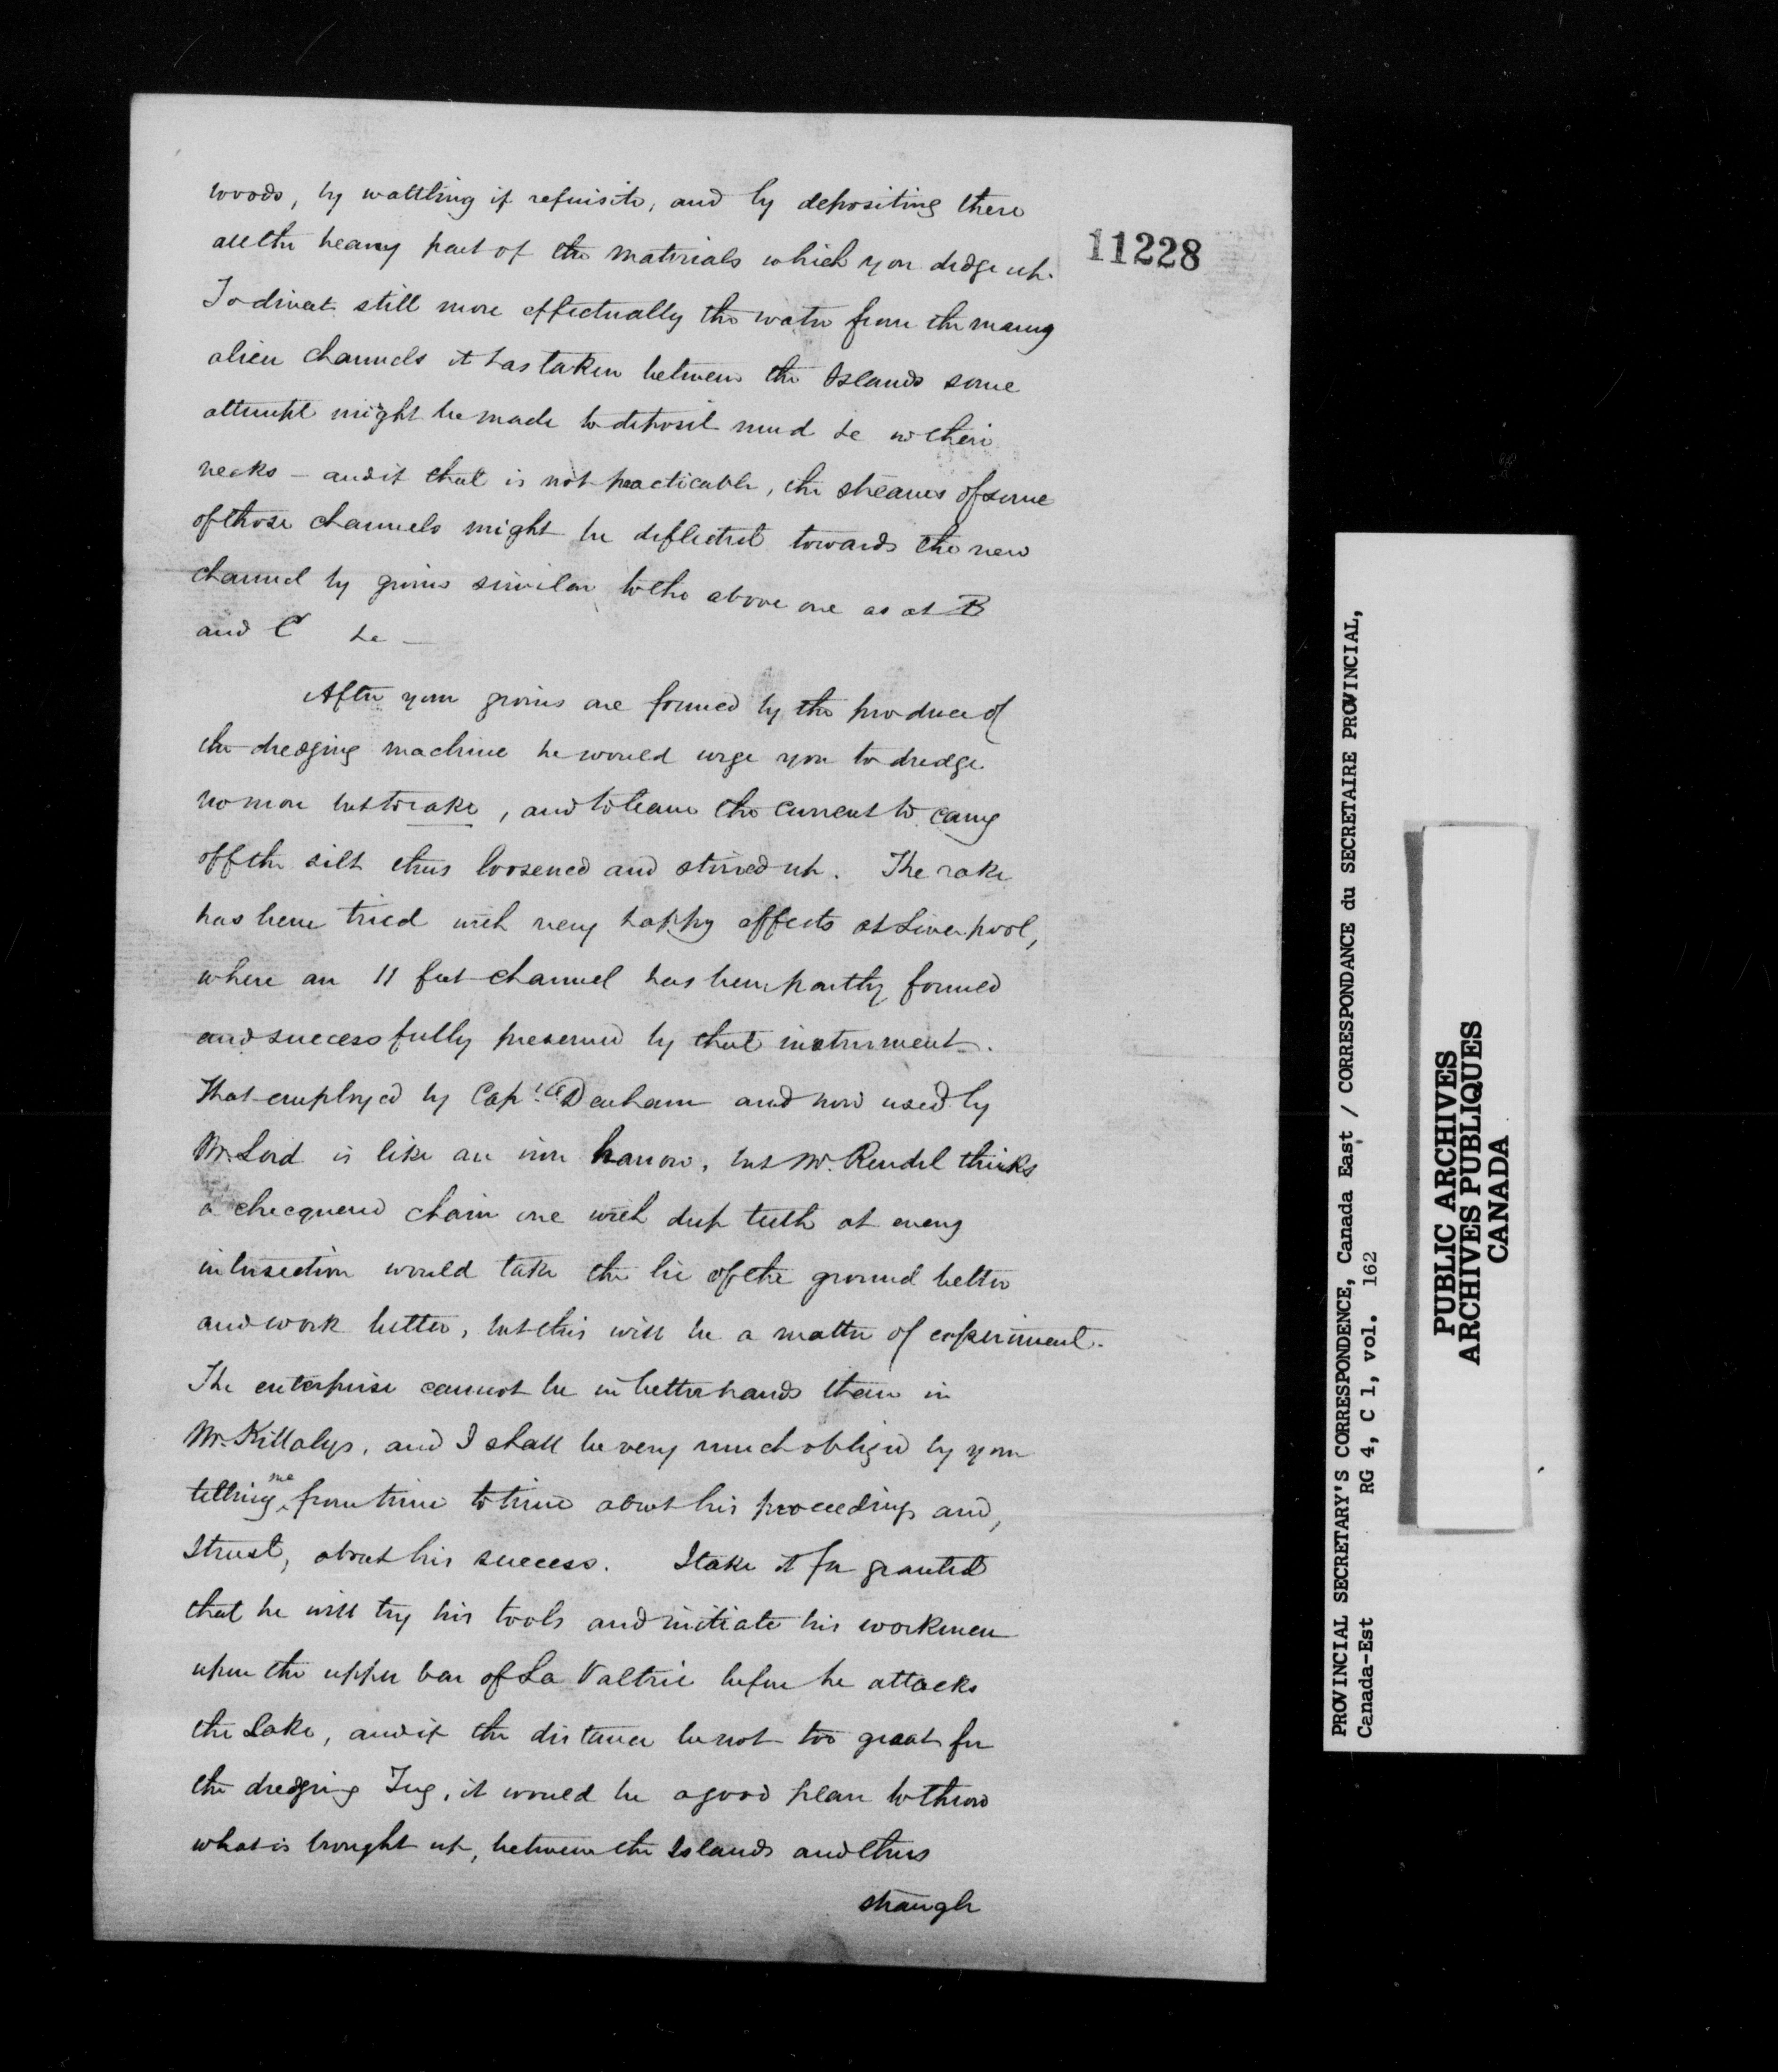 woods, by wattling if requisite, and by depositing there
all the heavy part of the materials which you dredge up.
To divert still more effectually the water from the many
alien channels it has taken between the Islands some
attempt might be made to deposit mud &c in their
necks – and if that is not practicable, the streams of some
of those channels might be deflected towards the new
channel by groins similar to the above one as at B
and C &c –
After your groins are formed by the produce of
the dredging machine he would urge you to dredge
no more but to rake, and to leave the current to carry
off the silt thus loosened and stirred up. The rake
has been tried with very happy effects at Liverpool,
where an 11 feet channel has been partly formed
and successfully preserved by that instrument.
That employed by Capt. Denham and now used by
Mr. Lord is like an iron harrow, but Mr. Rendel thinks
a chequered chain one with deep teeth at every
intersection would take the lie of the ground better
and work better, but this will be a matter of experiment.
The enterprise cannot be in better hands than in
Mr. Killalys, and I shall be very much obliged by your
telling me from time to time about his proceedings and,
I trust, about his success. I take it for granted
that he will try his tools and initiate his workmen
upon the upper bar of La Valtrie before he attacks
the Lake, and if the distance be not too great for
the dredging Tug, it would be a good plan to throw
what is brought up, between the Islands and thus
straugle
11228
PROVINCIAL SECRETARY'S CORRESPONDENCE, Canada East / CORRESPONDANCE du SECRETAIRE PROVINCIAL,
Canada-Est RG 4, C 1, vol. 162
PUBLIC ARCHIVES
ARCHIVES PUBLIQUES
CANADA